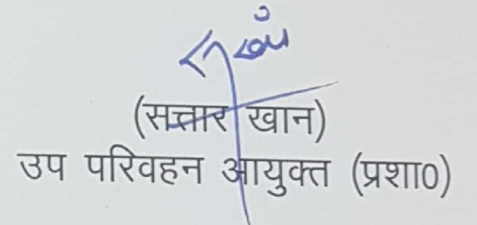 (सत्तार खान)
उप परिवहन आयुक्त (प्रशा0)